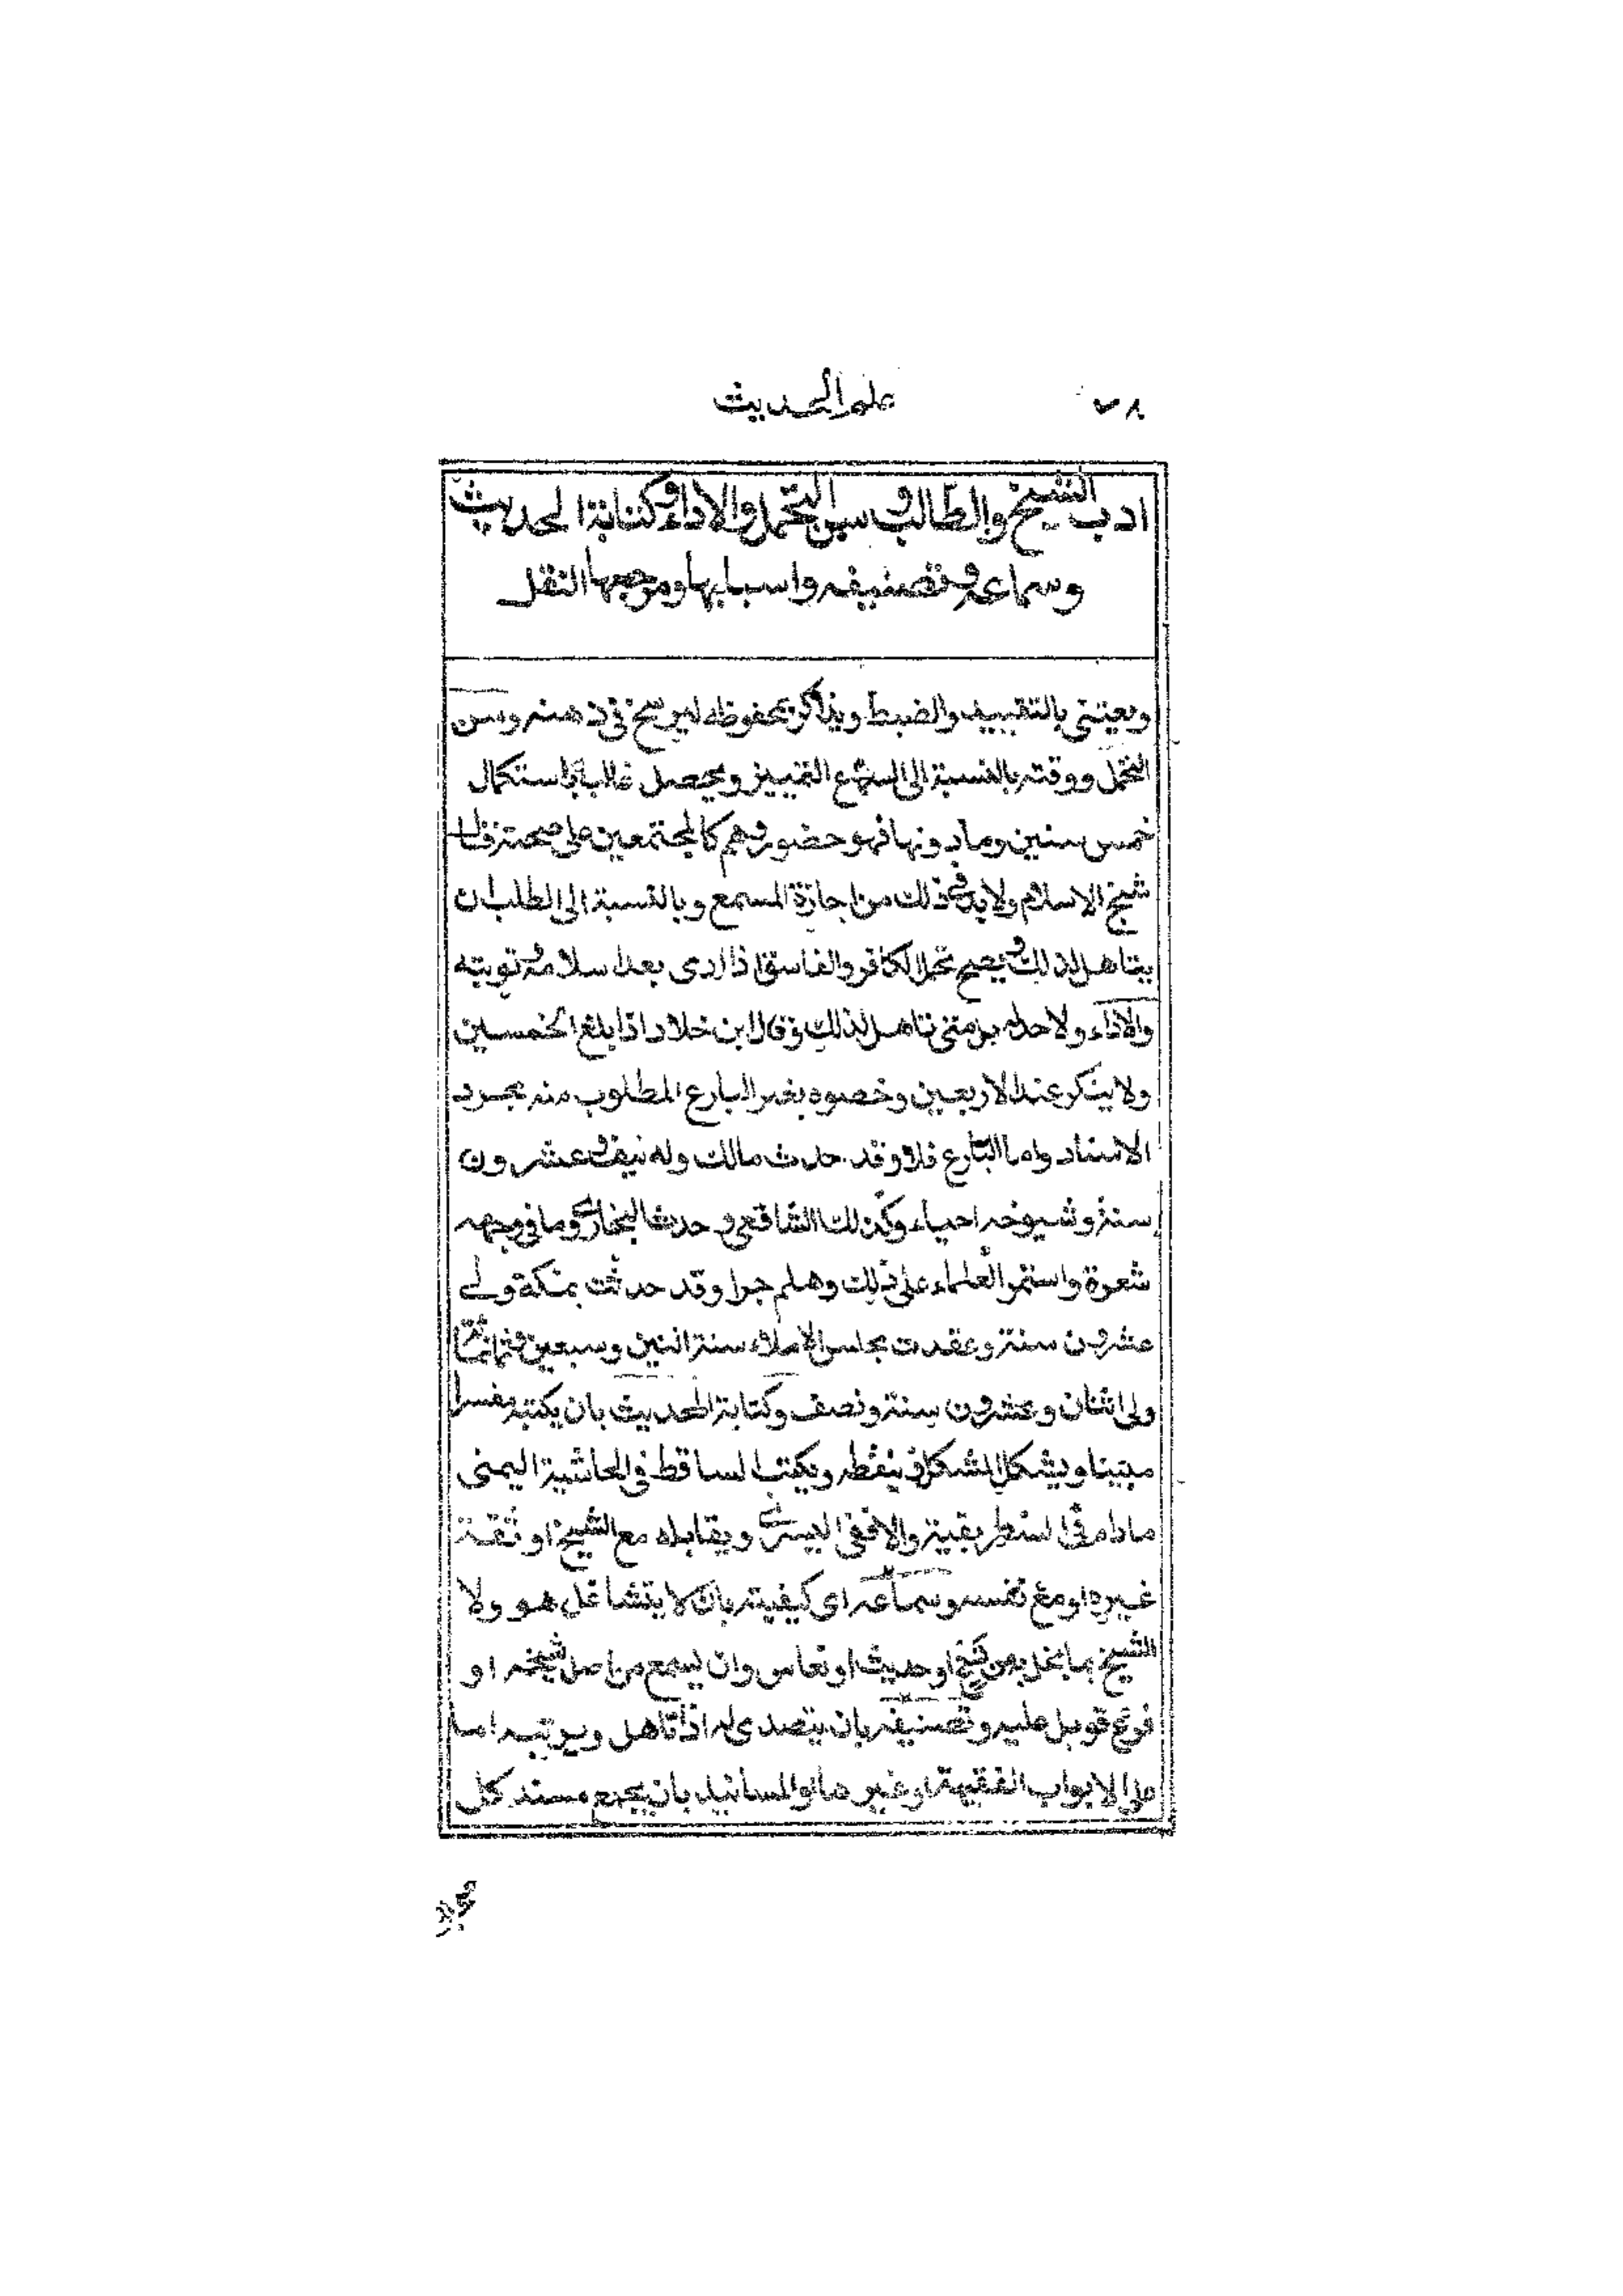 ٧٨
علم الحديث
ادب الشيخ والطالب وسن التحمل والاداء وكتابة الحديث
وسماعه وتصنيفه واسبابها ومرجعها النقل
ويعتنى بالتقييد والضبط ويذاكر بمحفوظه ليرسخ فى ذهنه وسن
التحمل ووقته بالنسبة الى السماع التمييز ويحصل غالبا باستكمال
خمس سنين وما دونها فهو حضور وهم كالمجتمعين على صحته قال
شيخ الاسلام ولا بد فى ذلك من اجازة المسمع وبالنسبة الى الطلب ان
يتاهل لذلك ويصح تحمل الكافر والفاسق اذا ادى بعد اسلامه وتوبته
والاداء ولا حد له بل متى تاهل لذلك وقال ابن خلاد اذا بلغ الخمسين
ولا ينكر عند الاربعين وخصوه بغير البارع المطلوب منه مجرد
الاسناد واما البارع فلا وقد حدث مالك وله نيف وعشرون
سنة وشيوخه احياء وكذلك الشافعى وحدث البخارى وما فى وجهه
شعرة واستمر العلماء على ذلك وهلم جرا وقد حدثت بمكة ولى
عشرون سنة وعقدت مجلس الاملاء سنة اثنين وسبعين وثمانمائة
ولى اثنان وعشرون سنة ونصف وكتابة الحديث بان يكتبه مفسرا
مبينا ويشكل المشكل وينقطه ويكتب الساقط فى الحاشية اليمنى
مادام فى السطر بقية والا ففى اليسرى ويقابله مع الشيخ او ثقة
غيره او مع نفسه وسماعه اى كيفيته بان لا يتشاغل هو ولا
الشيخ بما يخل به من نسخ او حديث او نعاس وان يسمع من اصل شيخه او
فرع قوبل عليه وتصنيفه بان يتصدى له اذا تاهل ويرتبه اما
على الابواب الفقهية او غيرها او المسانيد بان يجمع مسند كل